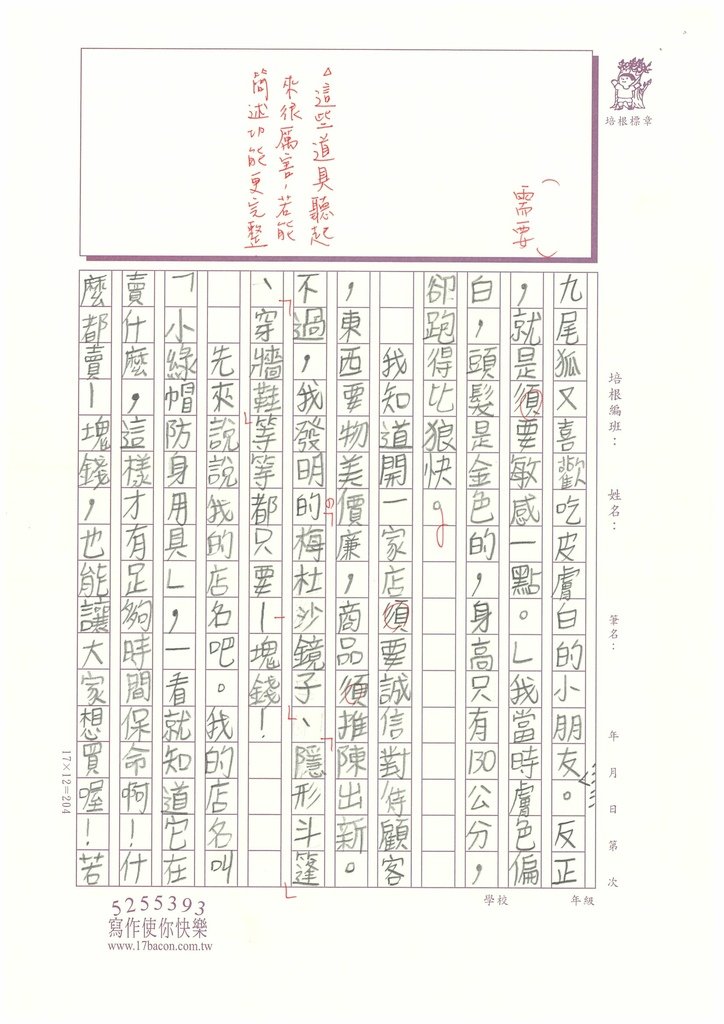 培根標章
（需要）
△這些道具聽起
來很厲害，若能
簡述功能更完整
培根編班：
姓名：
筆名：
年 月 日 第 次
學校
年級
九尾狐又喜歡吃皮膚白的小朋友。反正
，就是須要敏感一點。」我當時膚色偏
白，頭髮是金色的，身高只有130公分，
卻跑得比狼快。
我知道開一家店須要誠信對待顧客
，東西要物美價廉，商品須推陳出新。
不過，我發明的梅杜沙鏡子、隱形斗篷
、穿牆鞋等等都只要一塊錢！
先來說說我的店名吧。我的店名叫
「小綠帽防身用具」，一看就知道它在
賣什麼，這樣才有足夠時間保命啊！什
麼都賣一塊錢，也能讓大家想買喔！若
17×12=204
5255393
寫作使你快樂
www.17bacon.com.tw